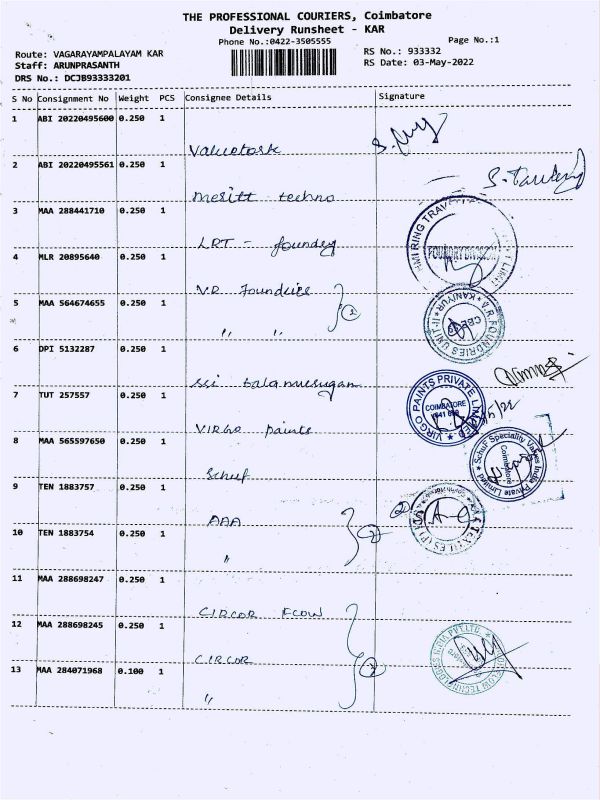 THE PROFESSIONAL COURIERS, Coimbatore
Delivery Runsheet - KAR
Phone No.:0422-3505555
Page No.:1
Route: VAGARAYAMPALAYAM KAR
RS No.: 933332
Staff: ARUNPRASANTH
RS Date: 03-May-2022
DRS No.: DCJB93333201
S No Consignment No Weight PCS Consignee Details Signature
1 ABI 20220495600 0.250 1
Valuetork
2 ABI 20220495561 0.250 1
Meritt techno
3 MAA 288441710 0.250 1
LRT - foundry
4 MLR 20895640 0.250 1
V.R. Foundries
5 MAA 564674655 0.250 1
" " 2
6 DPI 5132287 0.250 1
Sri balamurugan
7 TUT 257557 0.250 1
VIRGO paints
VIRGO PAINTS PRIVATE LIMITED
COIMBATORE
8 MAA 565597650 0.250 1
Schuf
Schuf Speciality Valves India Private Limited
Coimbatore
9 TEN 1883757 0.250 1
AAA
10 TEN 1883754 0.250 1
" 2
11 MAA 288698247 0.250 1
CIRCOR FLOW
12 MAA 288698245 0.250 1
CIRCOR
13 MAA 284071968 0.100 1
"